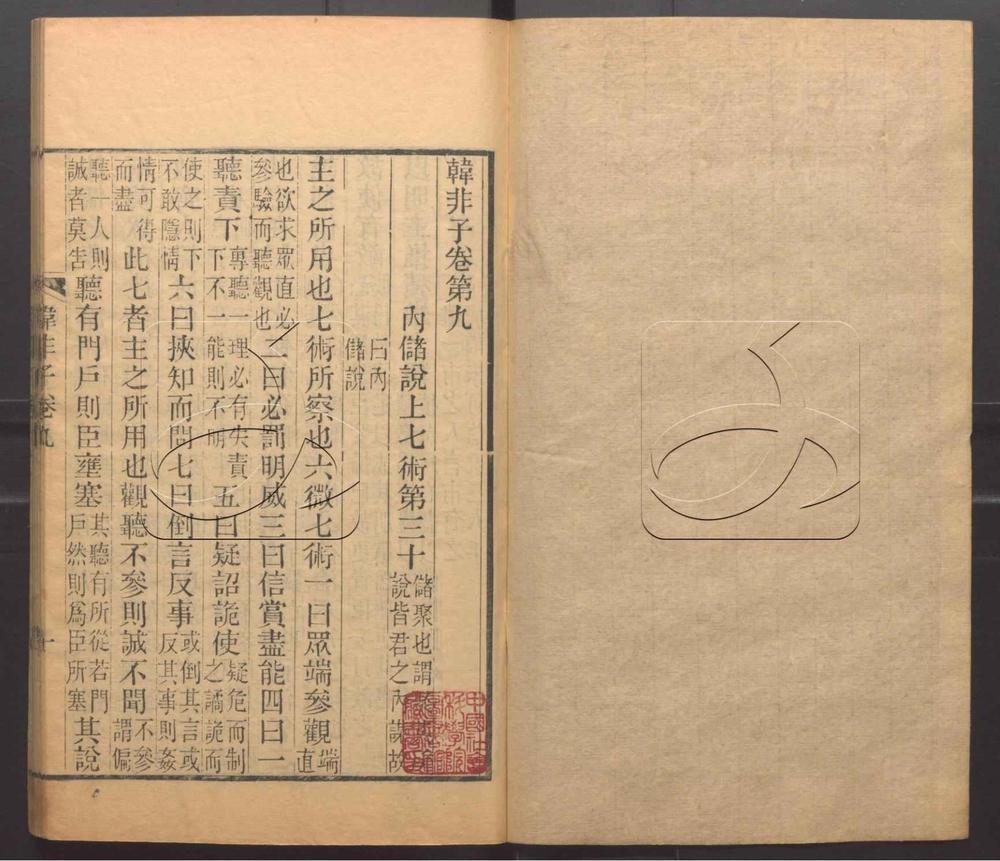 韓非子卷第九
内儲說上七術第三十儲聚也謂
說皆君之内謀故
曰內
儲說
主之所用也七術所察也六微七術一曰眾端參觀端
直
也欲求眾直必
參驗而聽觀也二曰必罰明威三曰信賞盡能四曰一
聽責下專聽一理必有失責
下不一能則不明五曰疑詔詭使疑危而制
之譎詭而
使之則下
不敢隱情六曰挾知而問七曰倒言反事或倒其言或
反其事則姦
情可得
而盡此七者主之所用也觀聽不參則誠不聞不參
謂偏
聽一人則
誠者莫告聽有門戶則臣壅塞其聽有所從若門
戶然則爲臣所塞其說
韓非子卷九
一